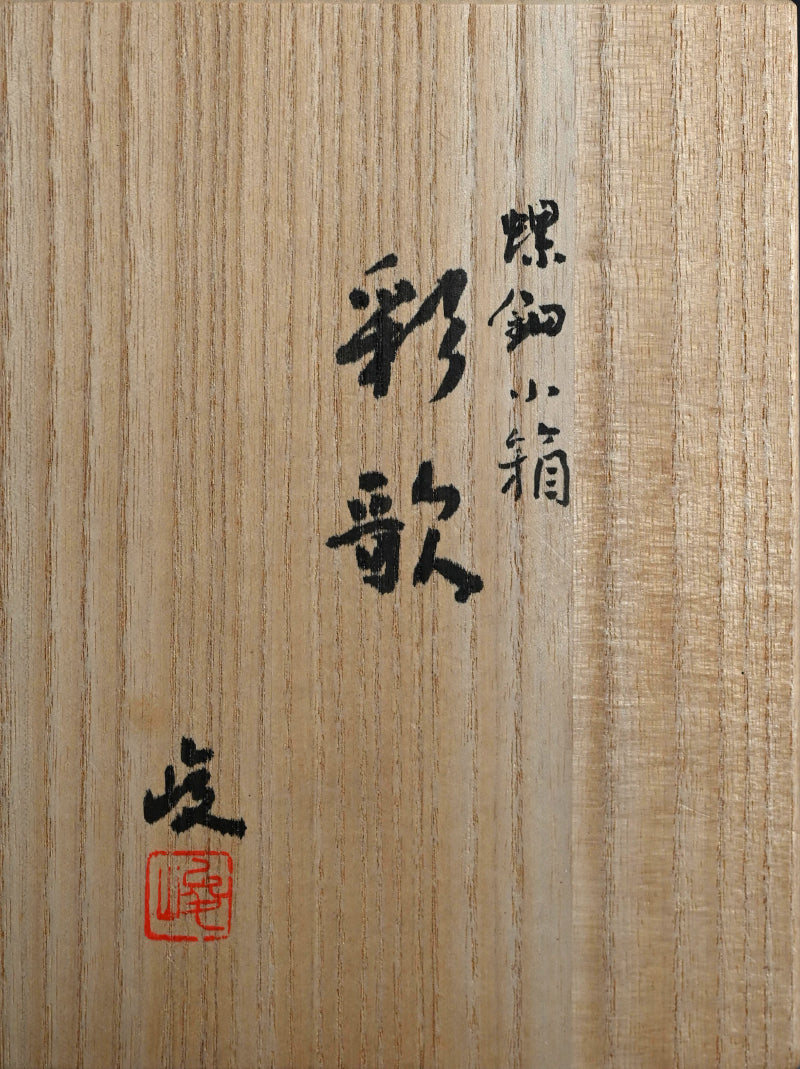 螺鈿小箱
彩歌